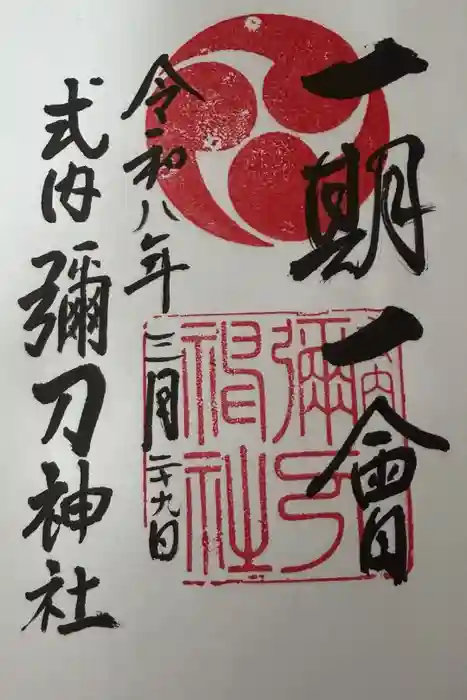 一期一會
令和八年
三月二十九日
式内彌刀神社
式内
彌刀
神社